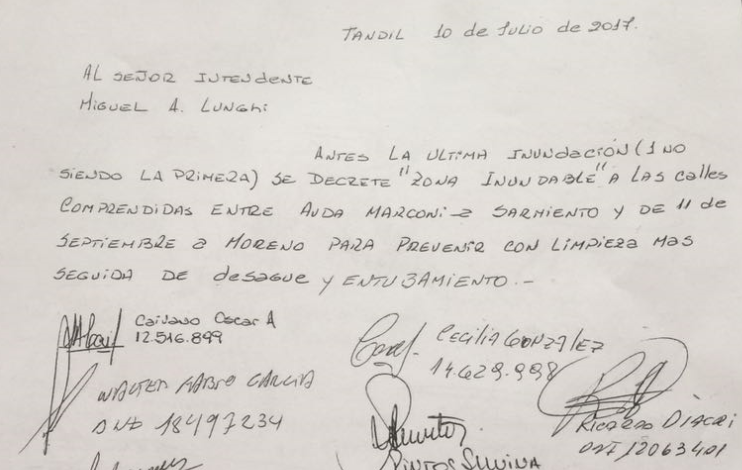 TANDIL 10 de Julio de 2017.
AL SEÑOR INTENDENTE
MIGUEL A. LUNGHI
ANTES LA ULTIMA INUNDACIÓN (1 NO
SIENDO LA PRIMERA) SE DECRETE "ZONA INUNDABLE" A LAS calles
COMPRENDIDAS ENTRE AVDA MARCONI a SARMIENTO Y DE 11 de
SEPTIEMBRE a MORENO PARA PREVENIR CON LIMPIEZA MAS
SEGUIDA DE desague y ENTUBAMIENTO.-
Oscar A
12.516.899
CECILIA GONZALEZ
14.629.998
WALTER FABIO GARCIA
DNI 18497234
RICARDO DIACRI
DNI 12063401